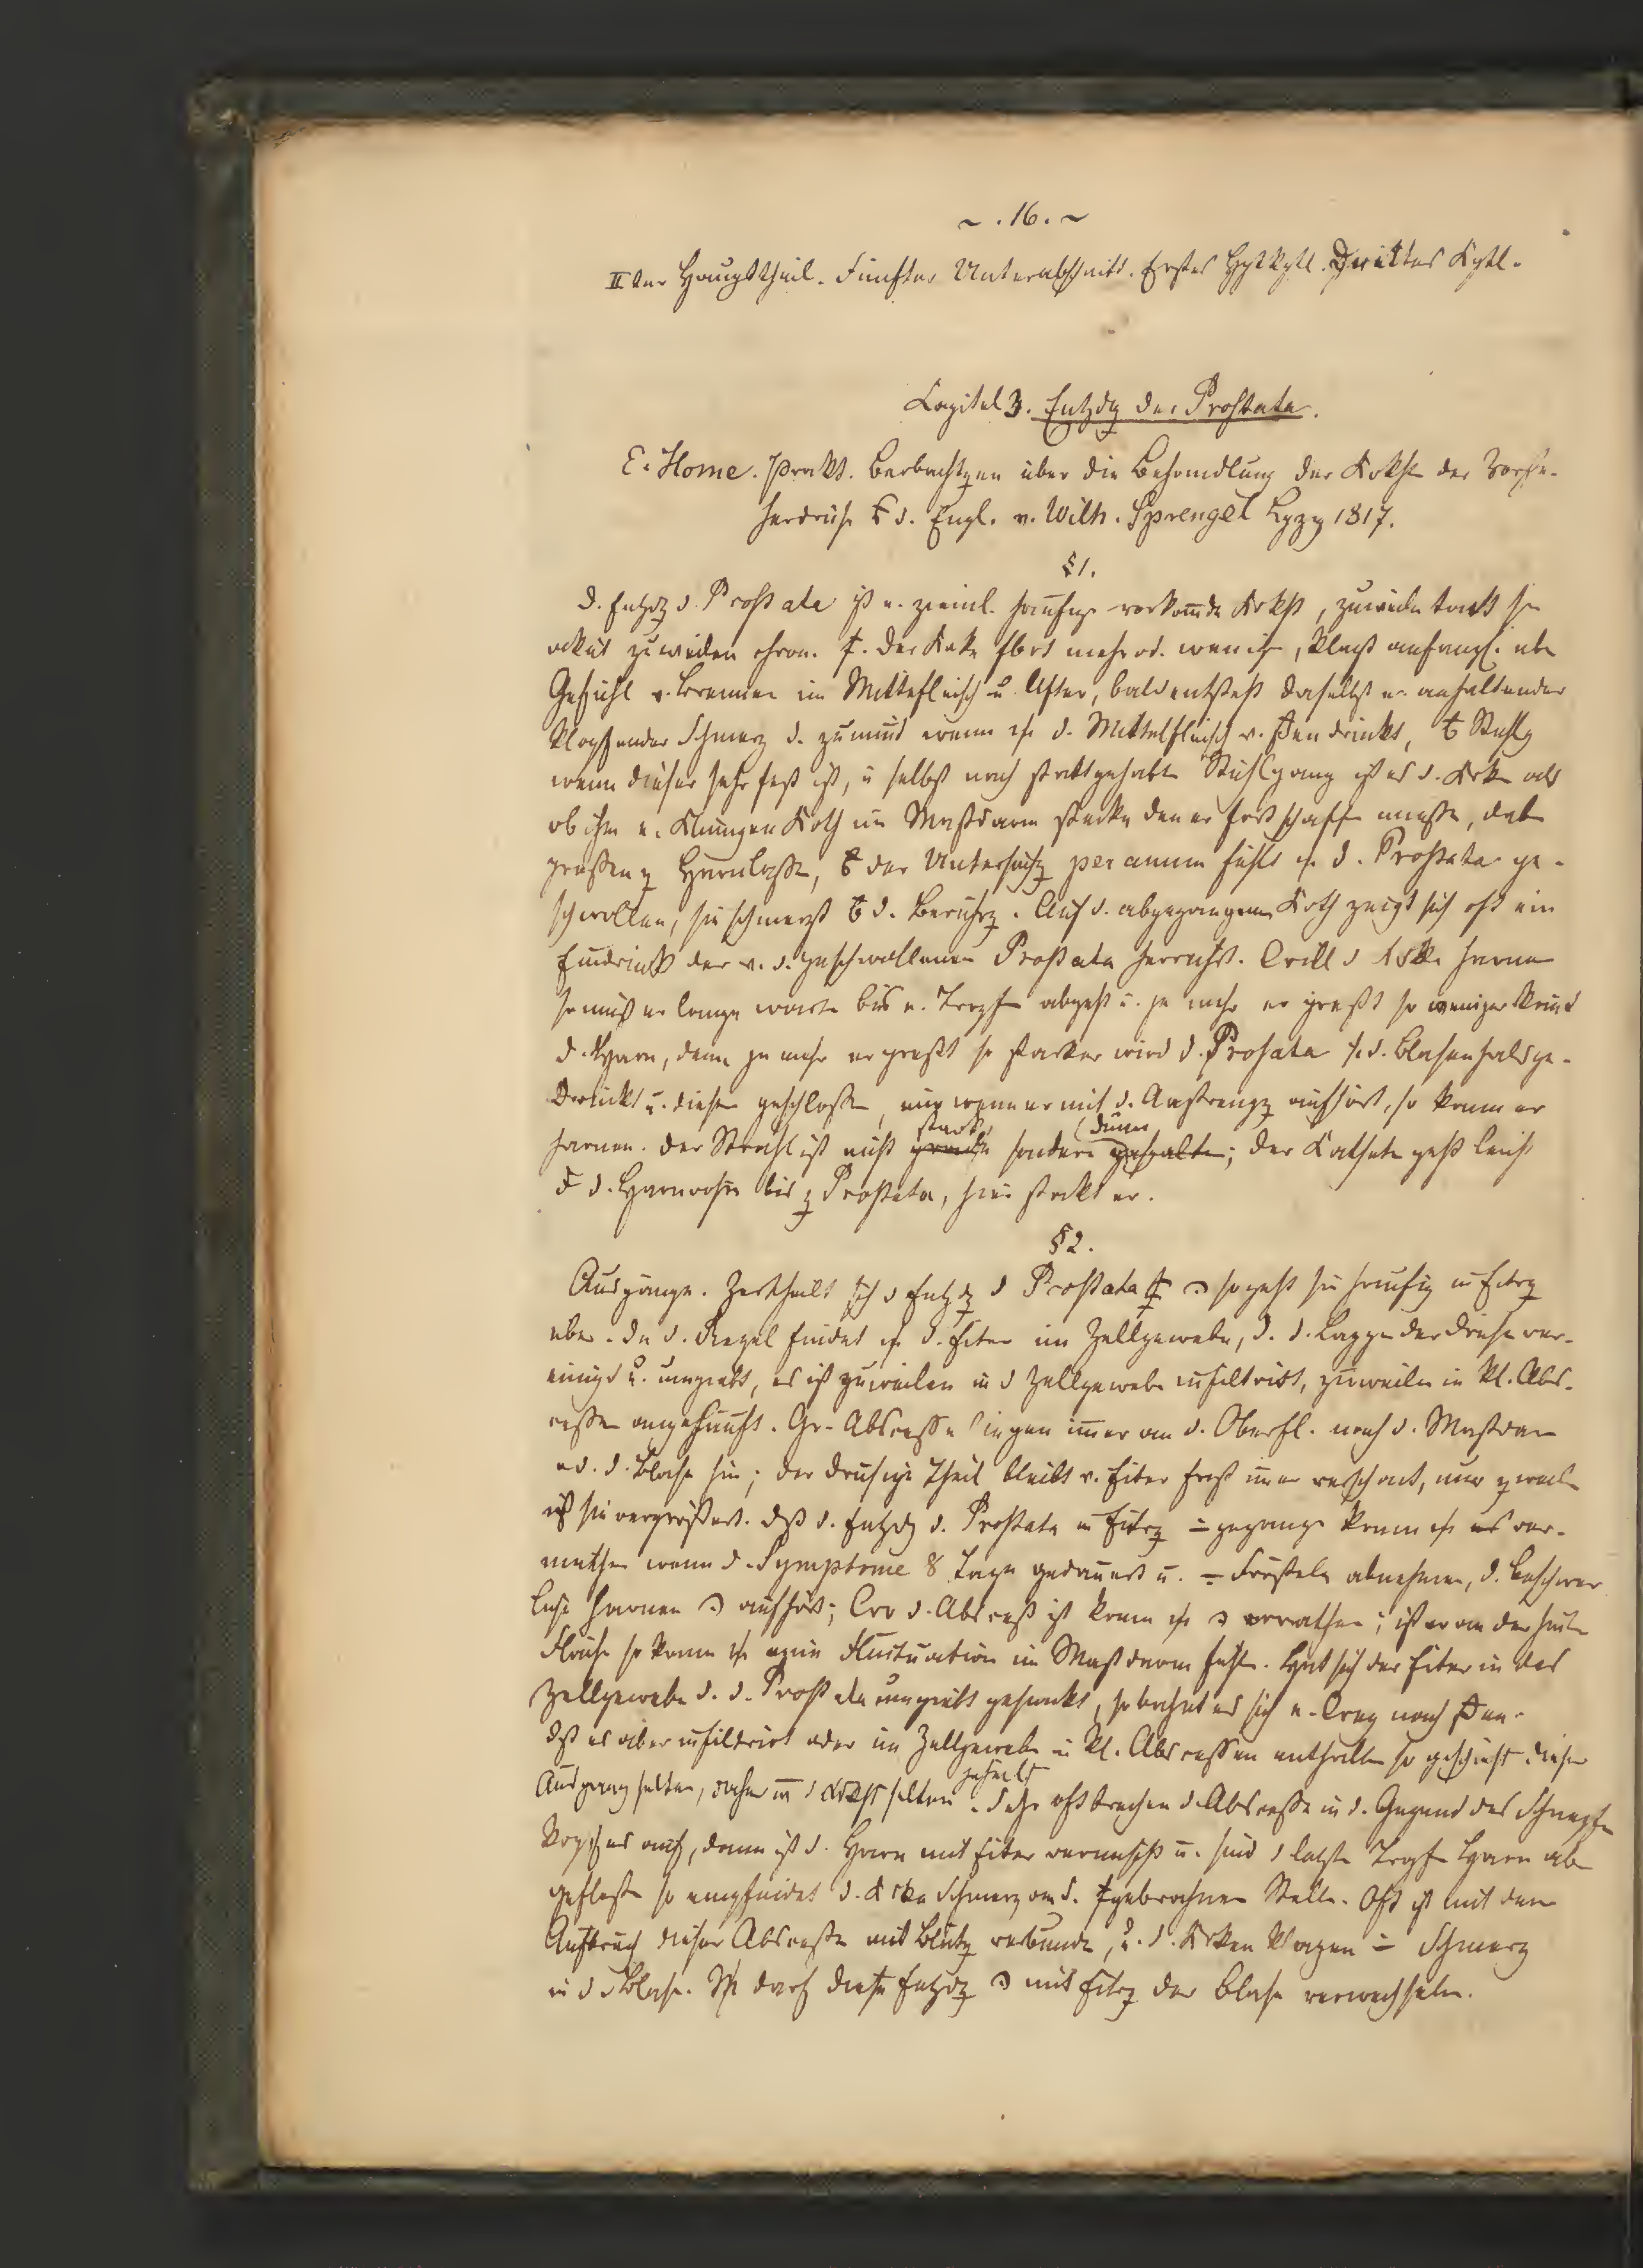 ~ . 16. ~
IIter Haupttheil. Fünfter Unterabschnitt. Erstes Hptkptl. Drittes Kptl.
Capitel 3. Entzdg der Prostata.
E. Home. prakt. Beobachtgen über die Behandlung der Krkht der Vorste-
herdrüse d. Engl. v. Wilh. Sprengel Lpzg 1817.
§ 1.
D. Entzdg d. Prostata ist e. zieml. häufige vorkomde Krkht, zuweilen tritt sie
akut zuweilen chron. Der Krke mehr od. wenig, klagt anfangs über
Gefühl v. Brennen im Mittelfleisch u. After, bald entsteht daselbst e. anhaltender
klopfender Schmerz d. zunimt wenn d. Mittelfleisch v. drückt, Stuhlg
wenn dieser sehr fest ist, u selbst nach stattgehabten Stuhlgang ist es d. Krken als
ob ihm e. Klumpen Koth im Mastdarm stecke den er fortschaffen müsse, dabei
Harnlassen, der Untersuchg per anum fühlt d. Prostata ge-
schwollen, sie schmerzt d. Berührg. Auf d. abgegangenen Koth zeigt sich oft ein
Eindruck der v. d. geschwollenen Prostata herrührt. Will d Krke harnen
so muß er lange warten bis e. Tropfen abgeht u. je mehr er preßt so weniger kömt
d. Harn, denn je mehr er preßt so stärker wird d. Prostata d. Blasenhals ge-
drückt u. dieser geschlossen, nur wenn er mit d. Anstrengg aufhört, so kann er
harnen. Der Strahl ist nicht stark sondern dünn; der Katheter geht leicht
d. Harnröhre bis z Prostata, hier steckt er.
§ 2.
Ausgänge. Zertheilt sich d Entzdg d Prostata so geht sie häufig in Eitrg
über. In d. Regel findet d. Eiter im Zellgewebe, d. d. Lappen der Drüse ver-
einigt u. umgiebt, es ist zuweilen in d Zellgewebe infiltrirt, zuweilen in kl. Abs-
cessen angehäuft. Gr. Abscesse liegen imer an d. Oberfl. nach d. Mastdarm
od. d. Blase hin; der drüsige Theil bleibt v. Eiter fast imer verschont, nur
ist sie vergrößert. Dß d. Entzdg d. Prostata in Eitrg gegangen kann ver-
muthen wenn d. Symptome 8 Tage gedauert u. Frösteln abnehmen, d. beschwer
liche Harnen aufhört; Wo d. Absceß ist kann errathen; ist er an der hintern
Fläche so kann Fluctuation im Mastdarm fühlen. Hat sich der Eiter in das
Zellgewebe d. d. Prostata umgiebt gesenkt, so bahnt es sich e. Weg nach
Ist es aber infiltrirt oder im Zellgewebe in kl. Abscessen enthalten so geschieht dieser
Ausgang selten, daher d Krkht selten geheilt. Sehr oft brechen d Abscesse in d. Gegend des Schnepfen
kopfes auf, dann ist d. Harn mit Eiter vermischt u. sind d letzten Tropfen Harn ab
geflossen so empfindet d. Krke Schmerz an d. gebrochnen Stelle. Oft ist mit dem
Aufbruch dieser Abscesse mit Blutg verbunden, u. d. Krken klagen Schmerz
in d Blase. darf diese Entzdg mit Eitrg der Blase verwechseln.